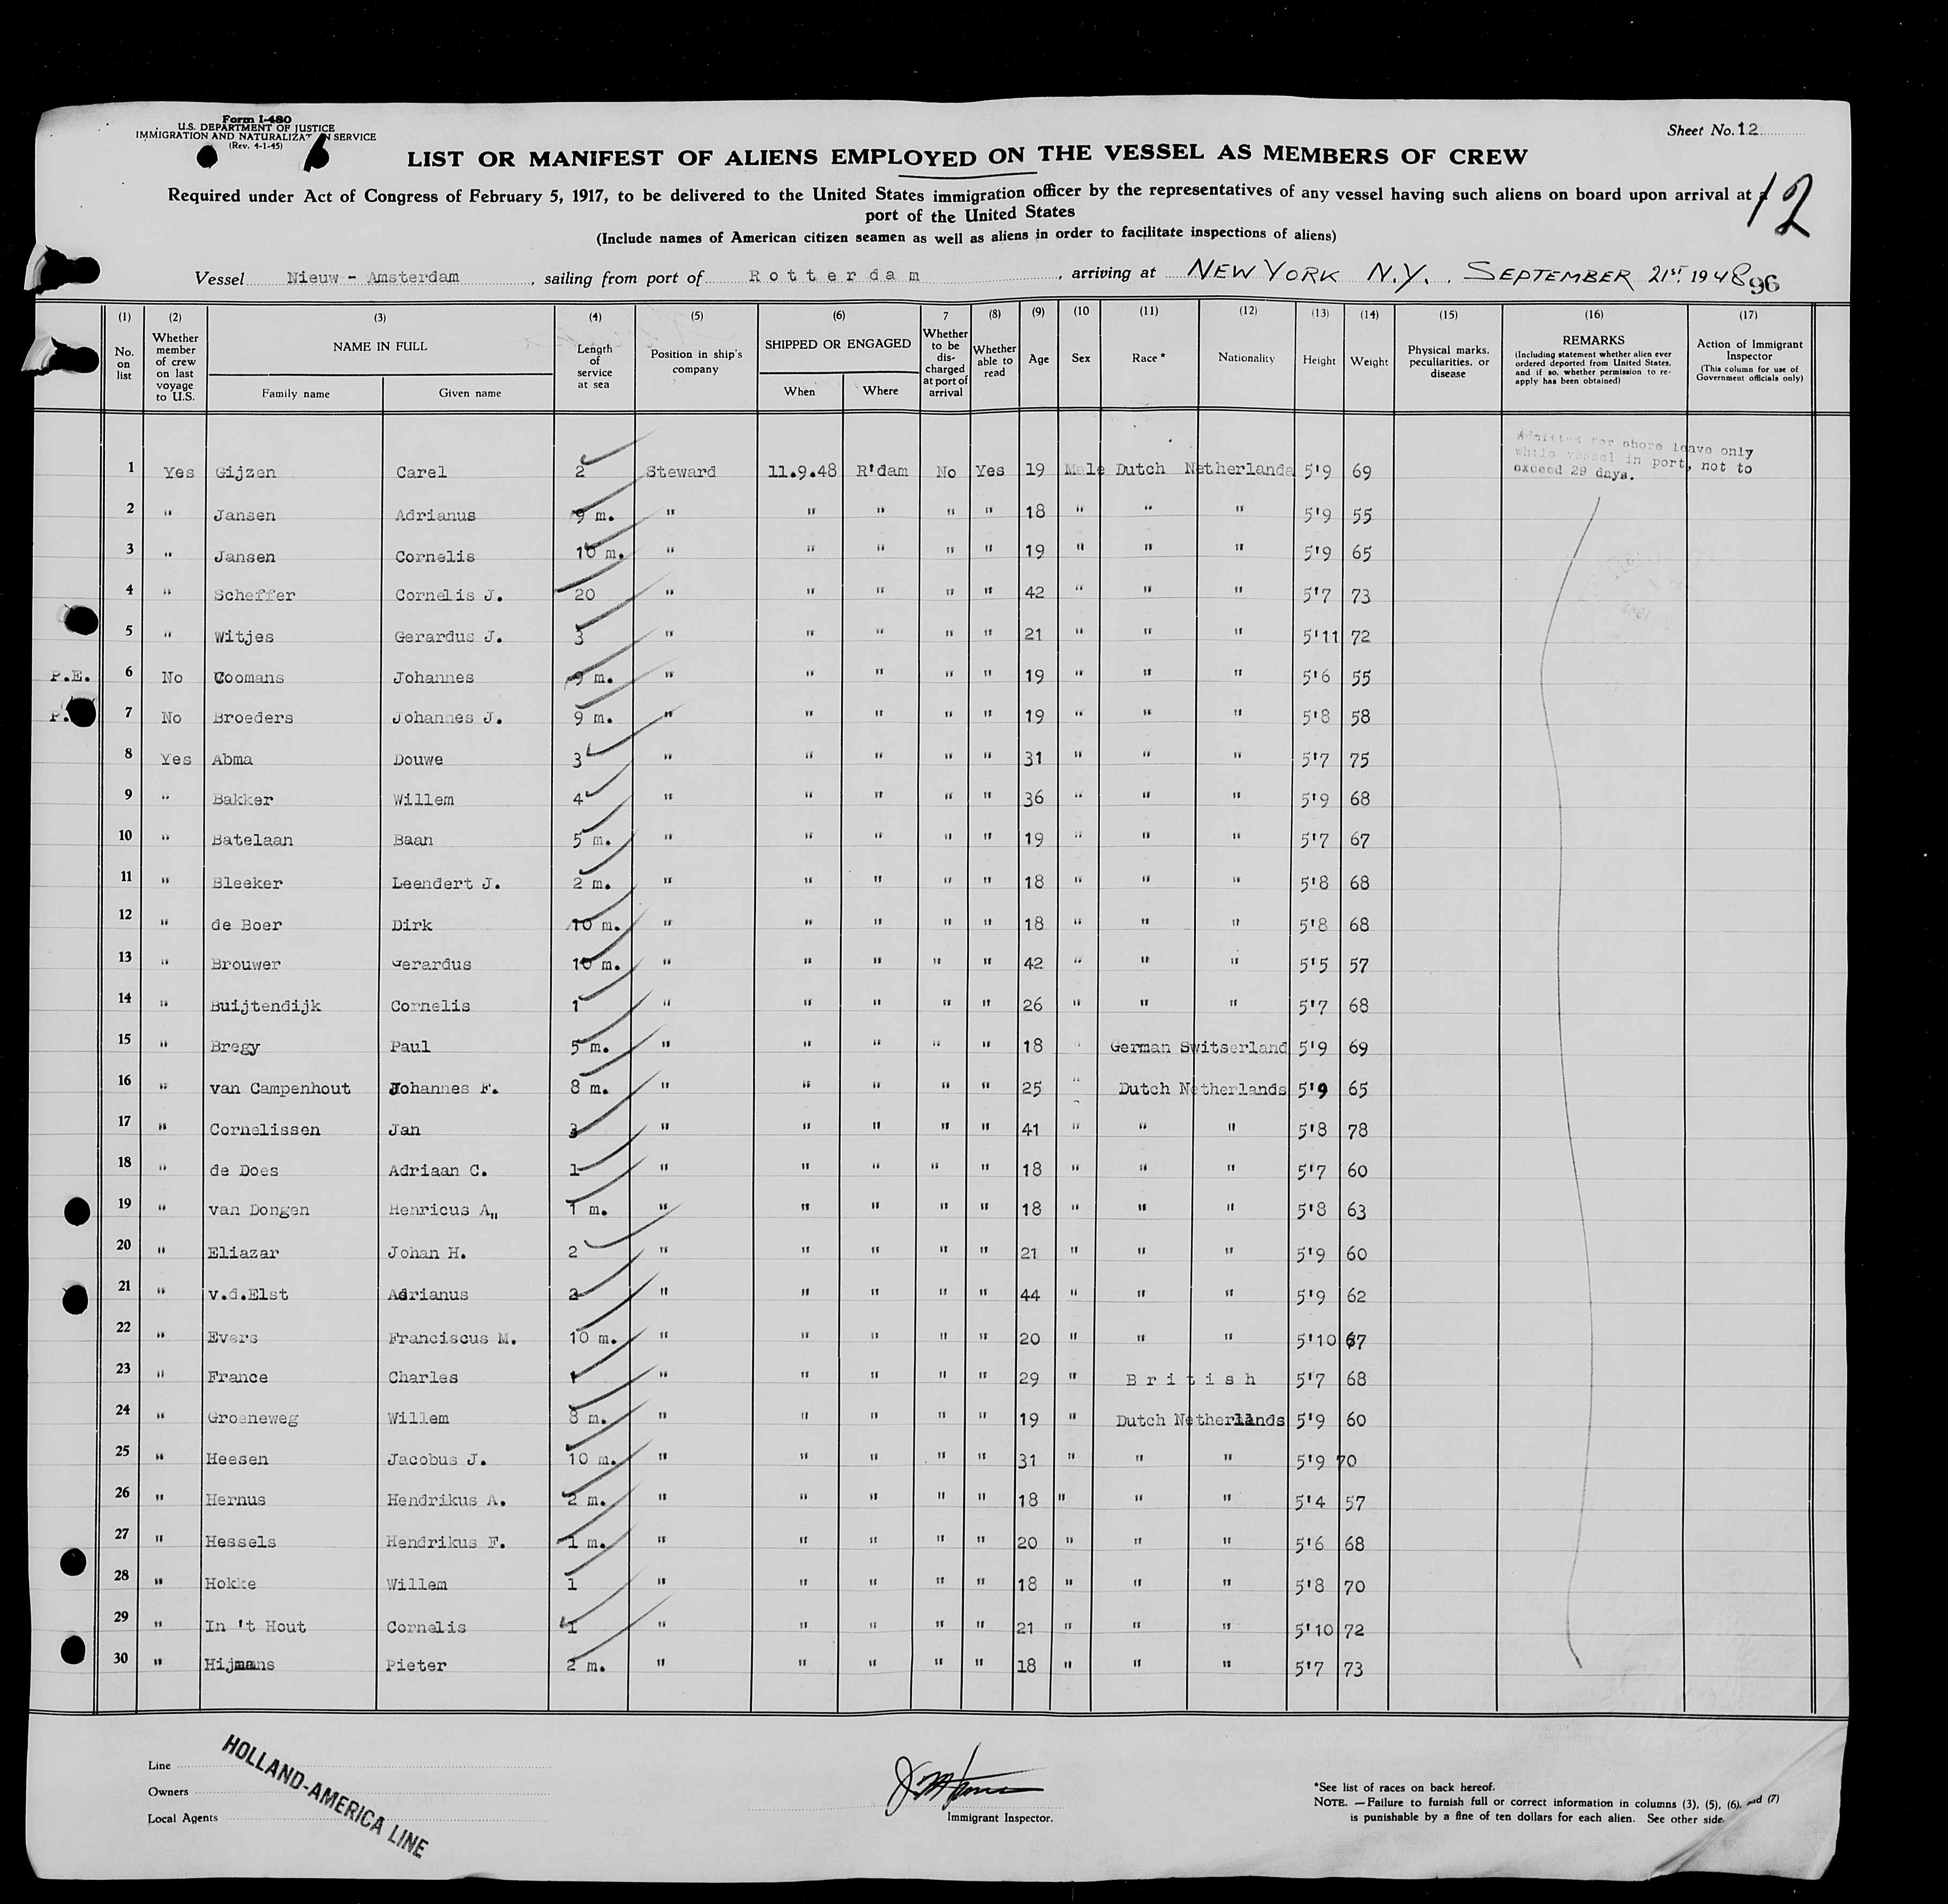 Form I-480
U.S. DEPARTMENT OF JUSTICE
IMMIGRATION AND NATURALIZATION SERVICE
(Rev. 4-1-45)
Sheet No. 12
LIST OR MANIFEST OF ALIENS EMPLOYED ON THE VESSEL AS MEMBERS OF CREW
Required under Act of Congress of February 5, 1917, to be delivered to the United States immigration officer by the representatives of any vessel having such aliens on board upon arrival at a
port of the United States
12
(Include names of American citizen seamen as well as aliens in order to facilitate inspections of aliens)
Vessel Nieuw - Amsterdam , sailing from port of Rotterdam , arriving at NEW YORK N.Y. SEPTEMBER 21ST. 1948 96
(1) (2) (3) (4) (5) (6) 7 (8) (9) (10 (11) (12) (13) (14) (15) (16) (17)
No. on list
Whether member of crew on last voyage to U.S.
NAME IN FULL
Family name Given name
Length of service at sea
Position in ship's company
SHIPPED OR ENGAGED
When Where
Whether to be discharged at port of arrival
Whether able to read
Age
Sex
Race *
Nationality
Height
Weight
Physical marks, peculiarities, or disease
REMARKS
(Including statement whether alien ever ordered deported from United States, and if so, whether permission to re-apply has been obtained)
Action of Immigrant Inspector
(This column for use of Government officials only)
Admitted for shore leave only
while vessel in port, not to
exceed 29 days.
1 Yes Gijzen Carel 2 Steward 11.9.48 R'dam No Yes 19 Male Dutch Netherlands 5'9 69
2 " Jansen Adrianus 9 m. " " " " " 18 " " " 5'9 55
3 " Jansen Cornelis 10 m. " " " " " 19 " " " 5'9 65
4 " Scheffer Cornelis J. 20 " " " " " 42 " " " 5'7 73
5 " Witjes Gerardus J. 3 " " " " " 21 " " " 5'11 72
P.E. 6 No Coomans Johannes 9 m. " " " " " 19 " " " 5'6 55
P. 7 No Broeders Johannes J. 9 m. " " " " " 19 " " " 5'8 58
8 Yes Abma Douwe 3 " " " " " 31 " " " 5'7 75
9 " Bakker Willem 4 " " " " " 36 " " " 5'9 68
10 " Batelaan Baan 5 m. " " " " " 19 " " " 5'7 67
11 " Bleeker Leendert J. 2 m. " " " " " 18 " " " 5'8 68
12 " de Boer Dirk 10 m. " " " " " 18 " " " 5'8 68
13 " Brouwer Gerardus 10 m. " " " " " 42 " " " 5'5 57
14 " Buijtendijk Cornelis 1 " " " " " 26 " " " 5'7 68
15 " Bregy Paul 5 m. " " " " " 18 " German Switserland 5'9 69
16 " van Campenhout Johannes F. 8 m. " " " " " 25 " Dutch Netherlands 5'9 65
17 " Cornelissen Jan 3 " " " " " 41 " " " 5'8 78
18 " de Does Adriaan C. 1 " " " " " 18 " " " 5'7 60
19 " van Dongen Henricus A„ 1 m. " " " " " 18 " " " 5'8 63
20 " Eliazar Johan H. 2 " " " " " 21 " " " 5'9 60
21 " v.d.Elst Adrianus 2 " " " " " 44 " " " 5'9 62
22 " Evers Franciscus M. 10 m. " " " " " 20 " " " 5'10 67
23 " France Charles 1 " " " " " 29 " British 5'7 68
24 " Groeneweg Willem 8 m. " " " " " 19 " Dutch Netherlands 5'9 60
25 " Heesen Jacobus J. 10 m. " " " " " 31 " " " 5'9 70
26 " Hernus Hendrikus A. 2 m. " " " " " 18 " " " 5'4 57
27 " Hessels Hendrikus F. 1 m. " " " " " 20 " " " 5'6 68
28 " Hokke Willem 1 " " " " " 18 " " " 5'8 70
29 " In 't Hout Cornelis 1 " " " " " 21 " " " 5'10 72
30 " Hijmans Pieter 2 m. " " " " " 18 " " " 5'7 73
Line
Owners
Local Agents
HOLLAND-AMERICA LINE
Immigrant Inspector.
*See list of races on back hereof.
NOTE. —Failure to furnish full or correct information in columns (3), (5), (6), and (7)
is punishable by a fine of ten dollars for each alien. See other side.